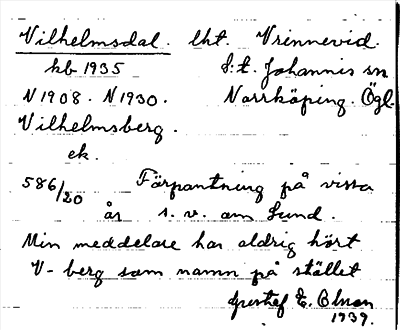 Vilhelmsdal. lht. Vrinnevid.
hb 1935 S:t. Johannis sn
N 1908. N 1930. Norrköping. Ögl.
Vilhelmsberg.
ek.
586/20 Förpantning på vissa
år s. v. om Lund.
Min meddelare har aldrig hört
V-berg som namn på stället
Gustaf E. Olsson
1939.